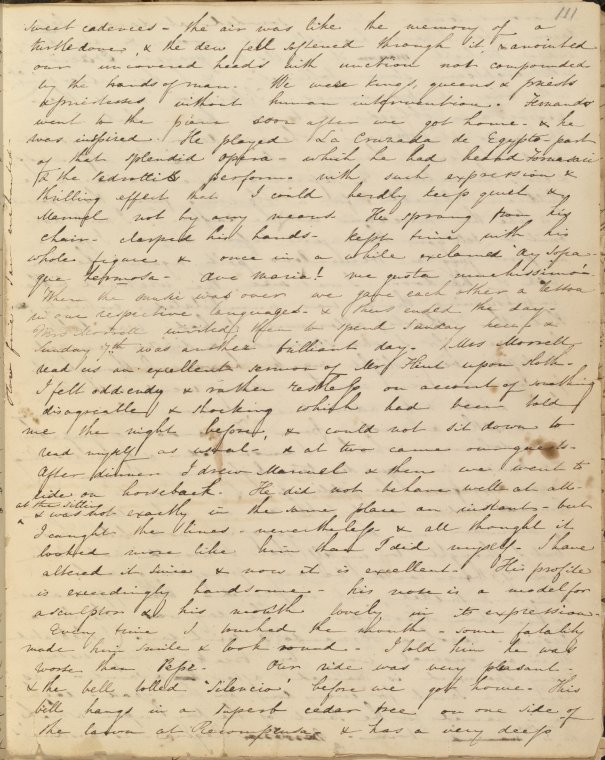 111
sweet cadences - the air was like the memory of a
turtledove, & the dew fell softened through it, & anointed
our uncovered heads with unction not compounded
by the hands of man. We were Kings, queens & priests
& priestesses, without human intervention. Fernando
went to the piano soon after we got home - & he
was inspired. He played La Cruzada de Egypto - part
of that splendid opera - which he had heard Fornasari
& the Pedrotti perform - with such expression &
thrilling effect that I could hardly keep quiet &
Manuel not by any means. He sprang from his
chair - clasped his hands - kept time with his
whole figure & once in a while exclaimed Ay Sopa-
que hermosa - Ave Maria! me gusta muchissimo
When the music was over we gave each other a lesson
in our respective languages - & thus ended the day -
Mrs Morrell invited them to spend Sunday here &
Sunday 7th was another brilliant day. Mrs Morrell
read us an excellent sermon of Mr upon Sloth -
I felt oddendy & rather restless on account of
disagreeable & shocking which had been told
me the night before, & could not sit down to
read myself as usual - & at two came our guests -
After dinner I drew Manuel & then we went to
ride on horseback. He did not behave well at all -
at the sitting
& was not exactly in the same place an instant - but
I caught the lines - nevertheless & all thought it
looked more like him than I did myself - I have
altered it since & now it is excellent - His profile
is exceedingly handsome - his nose is a model for
a sculptor & his mouth lovely in its expression -
Every time I touched the mouth - some fatality
made him smile & look round - I told him he was
worse than Pepe. Our ride was very pleasant -
& the bell tolled "Silencio" before we got home - This
bell hangs in a superb cedar tree on one side of
the lawn at Recompensa - & has a very deep